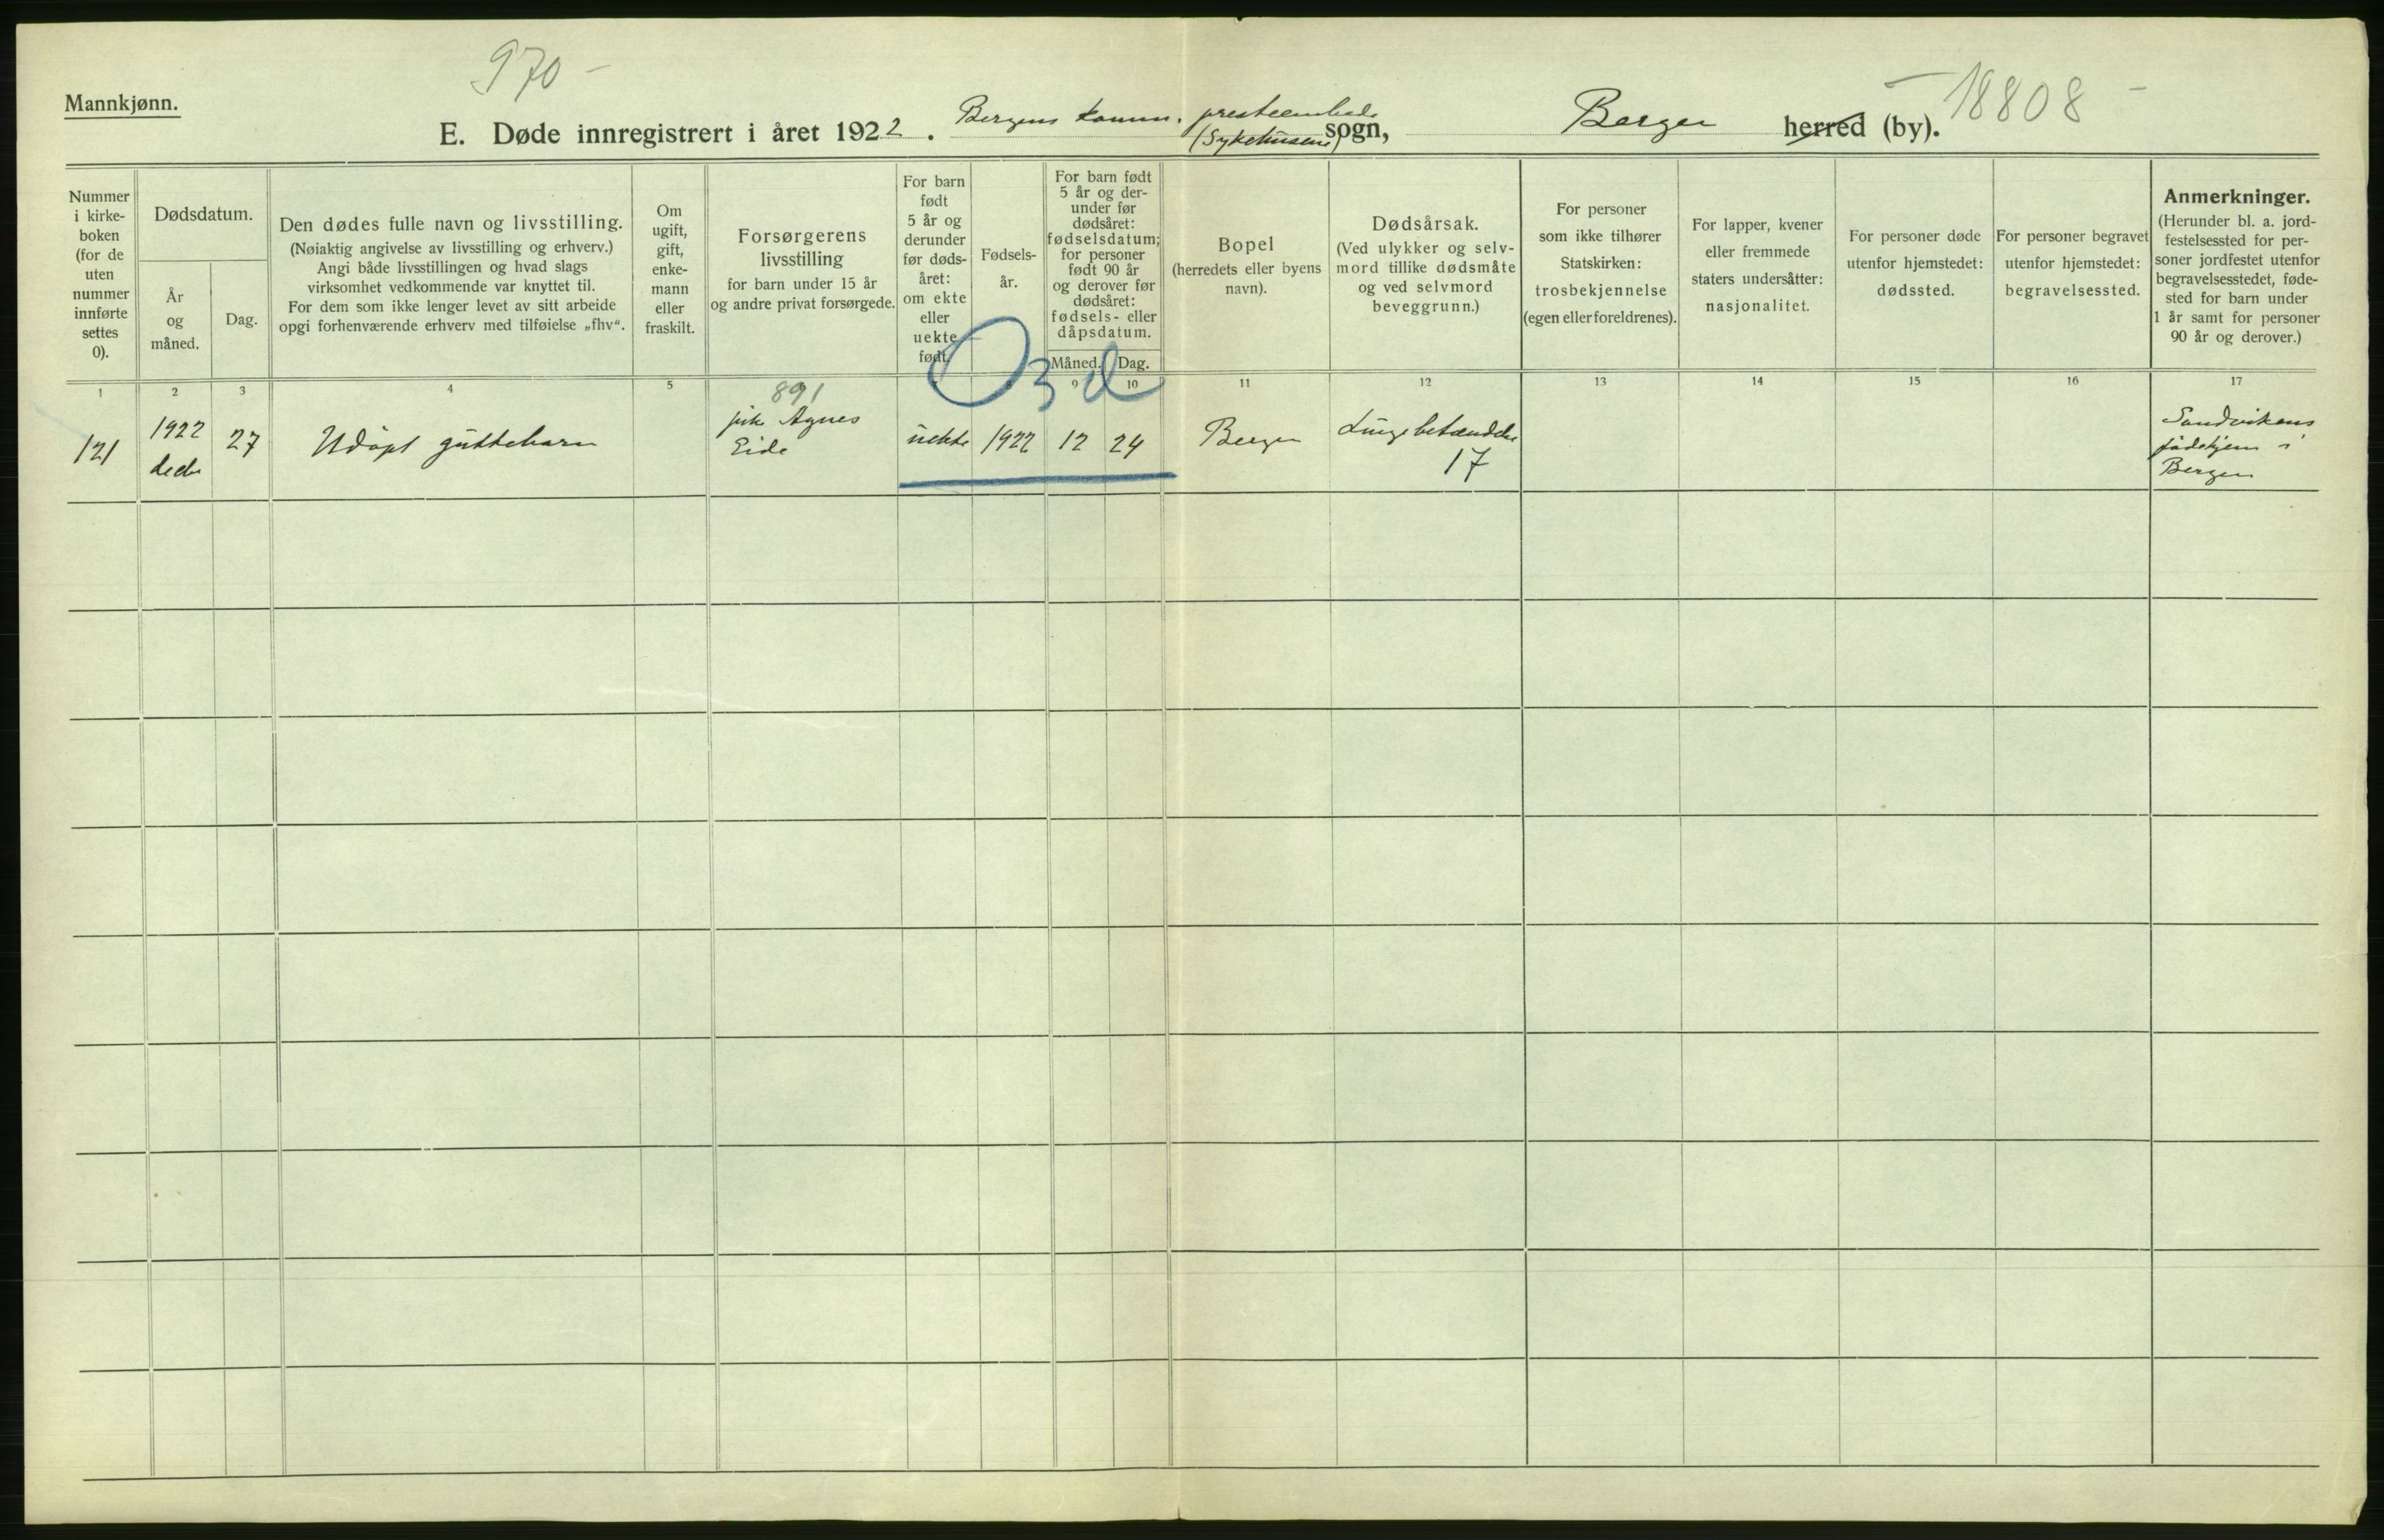 970 -
Mannkjønn.
E. Døde innregistrert i året 1922. Bergens komm. presteembede (Sykehusene) sogn, Bergen herred (by).
- 18808 -
Nummer
i kirke-
boken
(for de
uten
nummer
innførte
settes
0).
Dødsdatum.
År
og
måned.
Dag.
Den dødes fulle navn og livsstilling.
(Nøiaktig angivelse av livsstilling og erhverv.)
Angi både livsstillingen og hvad slags
virksomhet vedkommende var knyttet til.
For dem som ikke lenger levet av sitt arbeide
opgi forhenværende erhverv med tilføielse „fhv“.
Om
ugift,
gift,
enke-
mann
eller
fraskilt.
Forsørgerens
livsstilling
for barn under 15 år
og andre privat forsørgede.
For barn
født
5 år og
derunder
før døds-
året:
om ekte
eller
uekte
født.
Fødsels-
år.
For barn født
5 år og der-
under før
dødsåret:
fødselsdatum;
for personer
født 90 år
og derover før
dødsåret:
fødsels- eller
dåpsdatum.
Måned.
Dag.
Bopel
(herredets eller byens
navn).
Dødsårsak.
(Ved ulykker og selv-
mord tillike dødsmåte
og ved selvmord
beveggrunn.)
For personer
som ikke tilhører
Statskirken:
trosbekjennelse
(egen eller foreldrenes).
For lapper, kvener
eller fremmede
staters undersåtter:
nasjonalitet.
For personer døde
utenfor hjemstedet:
dødssted.
For personer begravet
utenfor hjemstedet:
begravelsessted.
Anmerkninger.
(Herunder bl. a. jord-
festelsessted for per-
soner jordfestet utenfor
begravelsesstedet, føde-
sted for barn under
1 år samt for personer
90 år og derover.)
O 3 d
1 2 3 4 5 7 8 9 10 11 12 13 14 15 16 17
891
121
1922
27
Udøpt guttebarn
Agnes
Eide
uekte
1922
12
24
Bergen
Lungebetændelse
17
Sandvikens
fødehjem i
Bergen